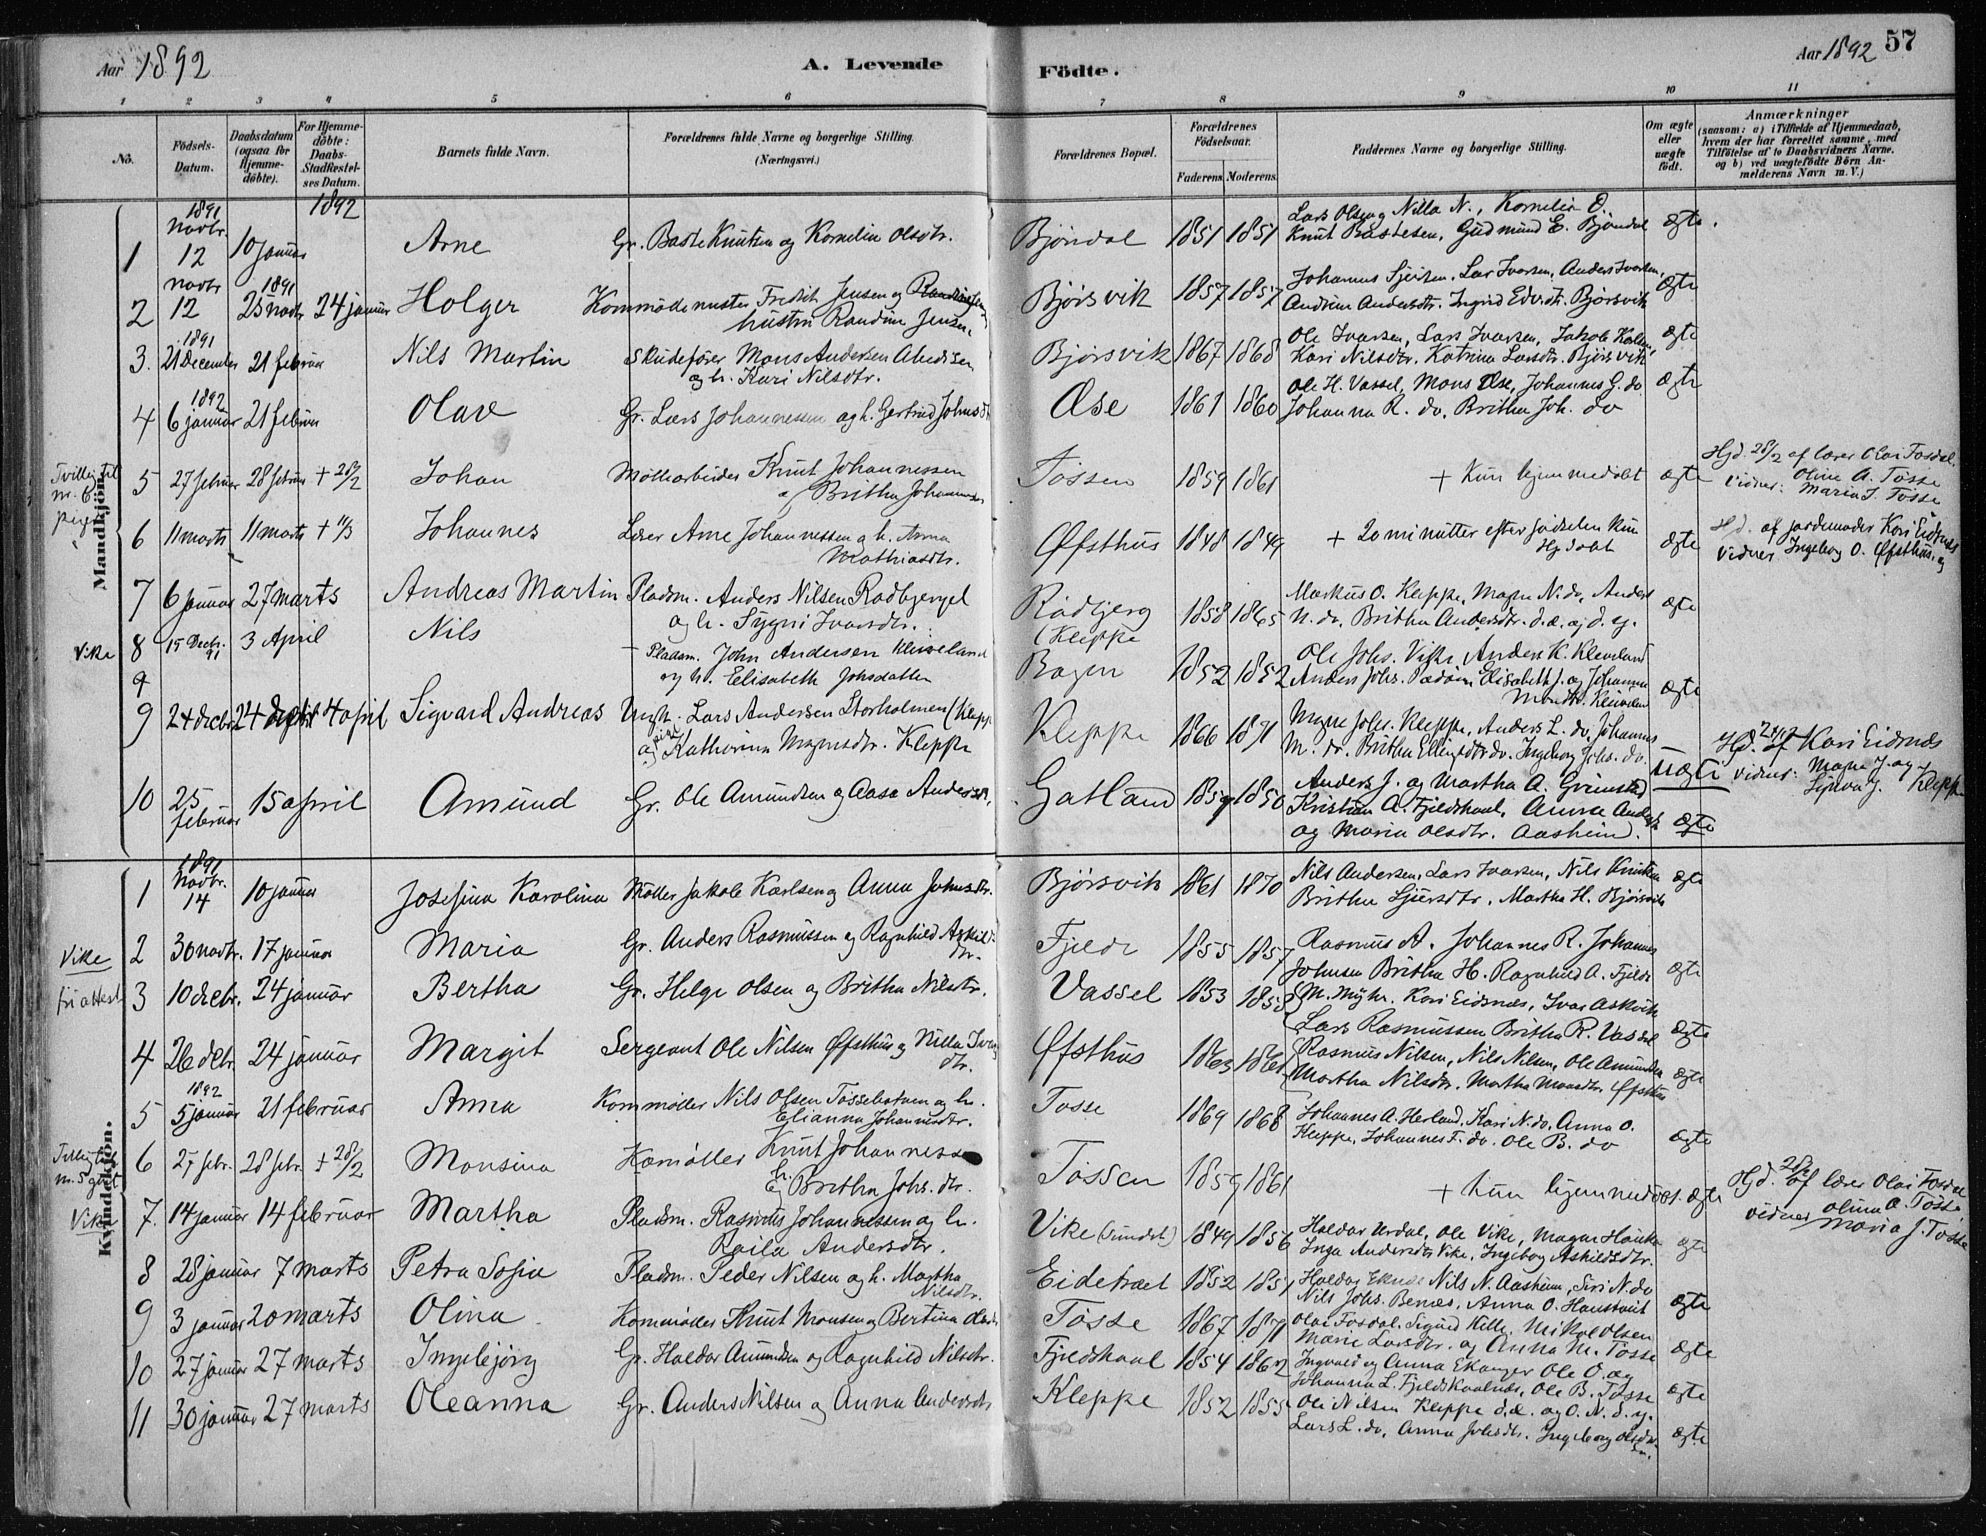 Aar 1892
A. Levende
Födte.
Aar 1892
57
1 2 3 4 5 6 7 8 9 10 11
No.
Födsels-Datum.
Daabsdatum (ogsaa for Hjemmedöbte).
For Hjemmedöbte: Daabs-Stadfæstelses Datum.
Barnets fulde Navn.
Forældrenes fulde Navne og borgerlige Stilling. (Næringsvei.)
Forældrenes Bopæl.
Forældrenes Födselsaar.
Faderens. Moderens.
Faddernes Navne og borgerlige Stilling.
Om ægte eller uægte født.
Anmærkninger (saasom: a) i Tilfælde af Hjemmedaab, hvem der har forrettet samme, med Tilföielse af to Daabsvidners Navne, og b) ved uægtefödte Börn Anmelderens Navn m. V.)
Mandkjön.
1892
1 1891 Novbr. 12 10 januar Arne Gr. Baste Knutsen og Kornelia Olsdtr. Bjöndal 1851 1851 Lars Olsen, Nilla N., Kornelia O.
Knut Bastesen, Gudmund E. Bjöndal ægte
2 novbr 12 1891 25 novbr 24 januar Holger Fredrik Jensen og
hustru Randine Jensen Bjørsvik 1857 1857 Johannes Lars Ivarsen, Anders Ivarsen,
Andrine Andersdtr. Ingrid Bjørsvik ægte
3. 1891 21 december 21 februar Nils Martin Skudefører Mons Andersen
og h. Kari Nilsdtr. Bjørsvik 1867 1868 Ole Ivarsen, Lars Ivarsen, Jakob
Kari Nilsdtr. Katrina Larsdtr. Bjørsvik ægte
4 1892 6 januar 21 februar Olav Gr. Lars Johannessen og h. Gertrud Johnsdtr Æse 1861 1860 Ole H. Vassel, Mons Æse, Johannes G. do
Johanna R. do, Britha Joh. do ægte
Tvilling til nr. 6 pige
5 27 februar 28 februar + 28/2 Johan Møllearbeider Knut Johannessen
og Britha Johannesdtr Tössen 1859 1861 + Kun hjemmedøbt ægte Hjd. 28/2 af lærer Olai Fosdal.
vidner: Oline A. Tösse
Maria J. Tösse
6 11 marts 11 marts + 11/3 Johannes Lærer Arne Johannessen og h. Anna
Mathiasdtr. Øfsthus 1848 1849 + 20 minutter efter fødselen kun
Hjdøbt ægte Hjd. af jordemoder Kari Eidsnes
vidner Ingeborg O. Øfsthus og
7 6 januar 27 marts Andreas Martin Pladsm. Anders Nilsen Rødbjerget
og h. Sygni Ivarsdtr. Rödbjerg
(Kleppe 1858 1865 Markus O. Kleppe, Magne N. do, Anders
N. do, Britha Andersdtr. d.æ. og d. y. ægte
Vike
8 15 Decbr. 91 3 April Nils Pladsm. John Andersen Kleiveland
og h. Elisabeth Johsdatter Bogen 1852 1852 Ole Johs. Vike, Anders K. Kleiveland
Anders Johs. Elisabeth J. og Johanna ægte
9
9 24 decbr 24 decbr 4 april Sigvard Andreas Ungk. Lars Andersen Storholmen (Kleppe
og pige Katharina Magnesdtr. Kleppe Kleppe 1866 1871 Magne Johs. Kleppe, Anders L. do, Johannes
M. do. Britha do, Ingeborg Johs. do. uægte Hjd. af Kari Eidsnæs
vidner: Magne J. og
Kleppe
10 25 februar 15 april Amund Gr. Ole Amundsen og Aasa Anders Gatland 1859 1850 Anders J. og Martha A. Grimstad
Kristian A. Fjeldskaal, Anna
og Maria Olsdtr. Aasheim. ægte
Kvindekjön.
1 1891 Novbr. 14 10 januar Josefina Karolina Møller Jakob Karlsen og Anna Johnsdtr. Bjørsvik 1861 1870 Nils Andersen, Lars Ivarsen, Nils Knutsen
Britha Martha H. Bjørsvik ægte
Vike
2 30 novbr. 17 januar Maria Gr. Anders Rasmussen og Ragnhild Askilds
dtr. Fjelde 1855 1857 Rasmus A. Johannes R. Johannes
Johnsen Britha H. Ragnhild A. Fjelde ægte
fri attest
3 10 decbr. 24 januar Bertha Gr. Helge Olsen og Britha Nilsdtr. Vassel 1853 1858 M. Myhr. Kari Eidsnæs, Ivar Askvik
Lars Rasmussen Britha R. Vassel ægte
4 26 debr. 24 januar Margit Sergeant Ole Nilsen Øfsthus og Nilla
dtr. Øfsthus 1863 1861 Rasmus Nilsen, Nils Nilsen, Ole Amundsen
Martha Nilsdtr. Martha Monsdtr. Øfsthus ægte
5 1892 5 januar 21 februar Anna Kornmøller Nils Olsen Tössebotnen og h.
Elianna Johannesdtr. Tosse 1869 1868 Johannes A. Herland, Kari N. do, Anna O.
Kleppe, Johannes F. do. Ole B. do ægte
6 27 febr. 28 febr. + 28/2 Monsina Kornmøller Knut Johannessen
og Britha Johs. dtr. Tössen 1859 1861 + kun hjemmedøbt. ægte Hjd. 28/2 af lærer Olai Fosdal
vidner Olina A. Tösse
Maria J. Tosse
Vike
7. 14 januar 14 februar Martha Pladsm. Rasmus Johannessen og h.
Raila Andersdtr. Vike (Sundet) 1849 1856 Haldor Urdal, Ole Vike, Magne
Inga Andersdtr Vike, Ingeborg Askildsdtr. ægte
8 28 januar 7 marts Petra Sofia Pladsm. Peder Nilsen og h. Martha
Nilsdtr. Eidetræet 1852 1851 Haldor Nils N. Aasheim, Siri N. do
Nils Johs. Anna O. ægte
9 3 januar 20 marts Olina Kornmøller Knut Monsen og Bertina Tösse 1867 1871 Olai Fosdal. Sigurd Mikal Olsen
Marie Larsdtr. og Anna M. Tosse ægte
10 27 januar 27 marts Ingebjörg Gr. Haldor Amundsen og Ragnhild Nilsdtr. Fjeldskaal 1854 1862 Ingvald og Anna Ekanger Ole O. og
Johanna L. Fjeldskaalnæs, Ole B. Tosse ægte
11 30 januar 27 marts Oleanna Gr. Anders Nilsen og Anna Andersdtr Kleppe 1852 1855 Ole Nilsen Kleppe d.æ. og O. N. d. y.
Lars L. do, Anna Johsdtr. Ingeborg ægte